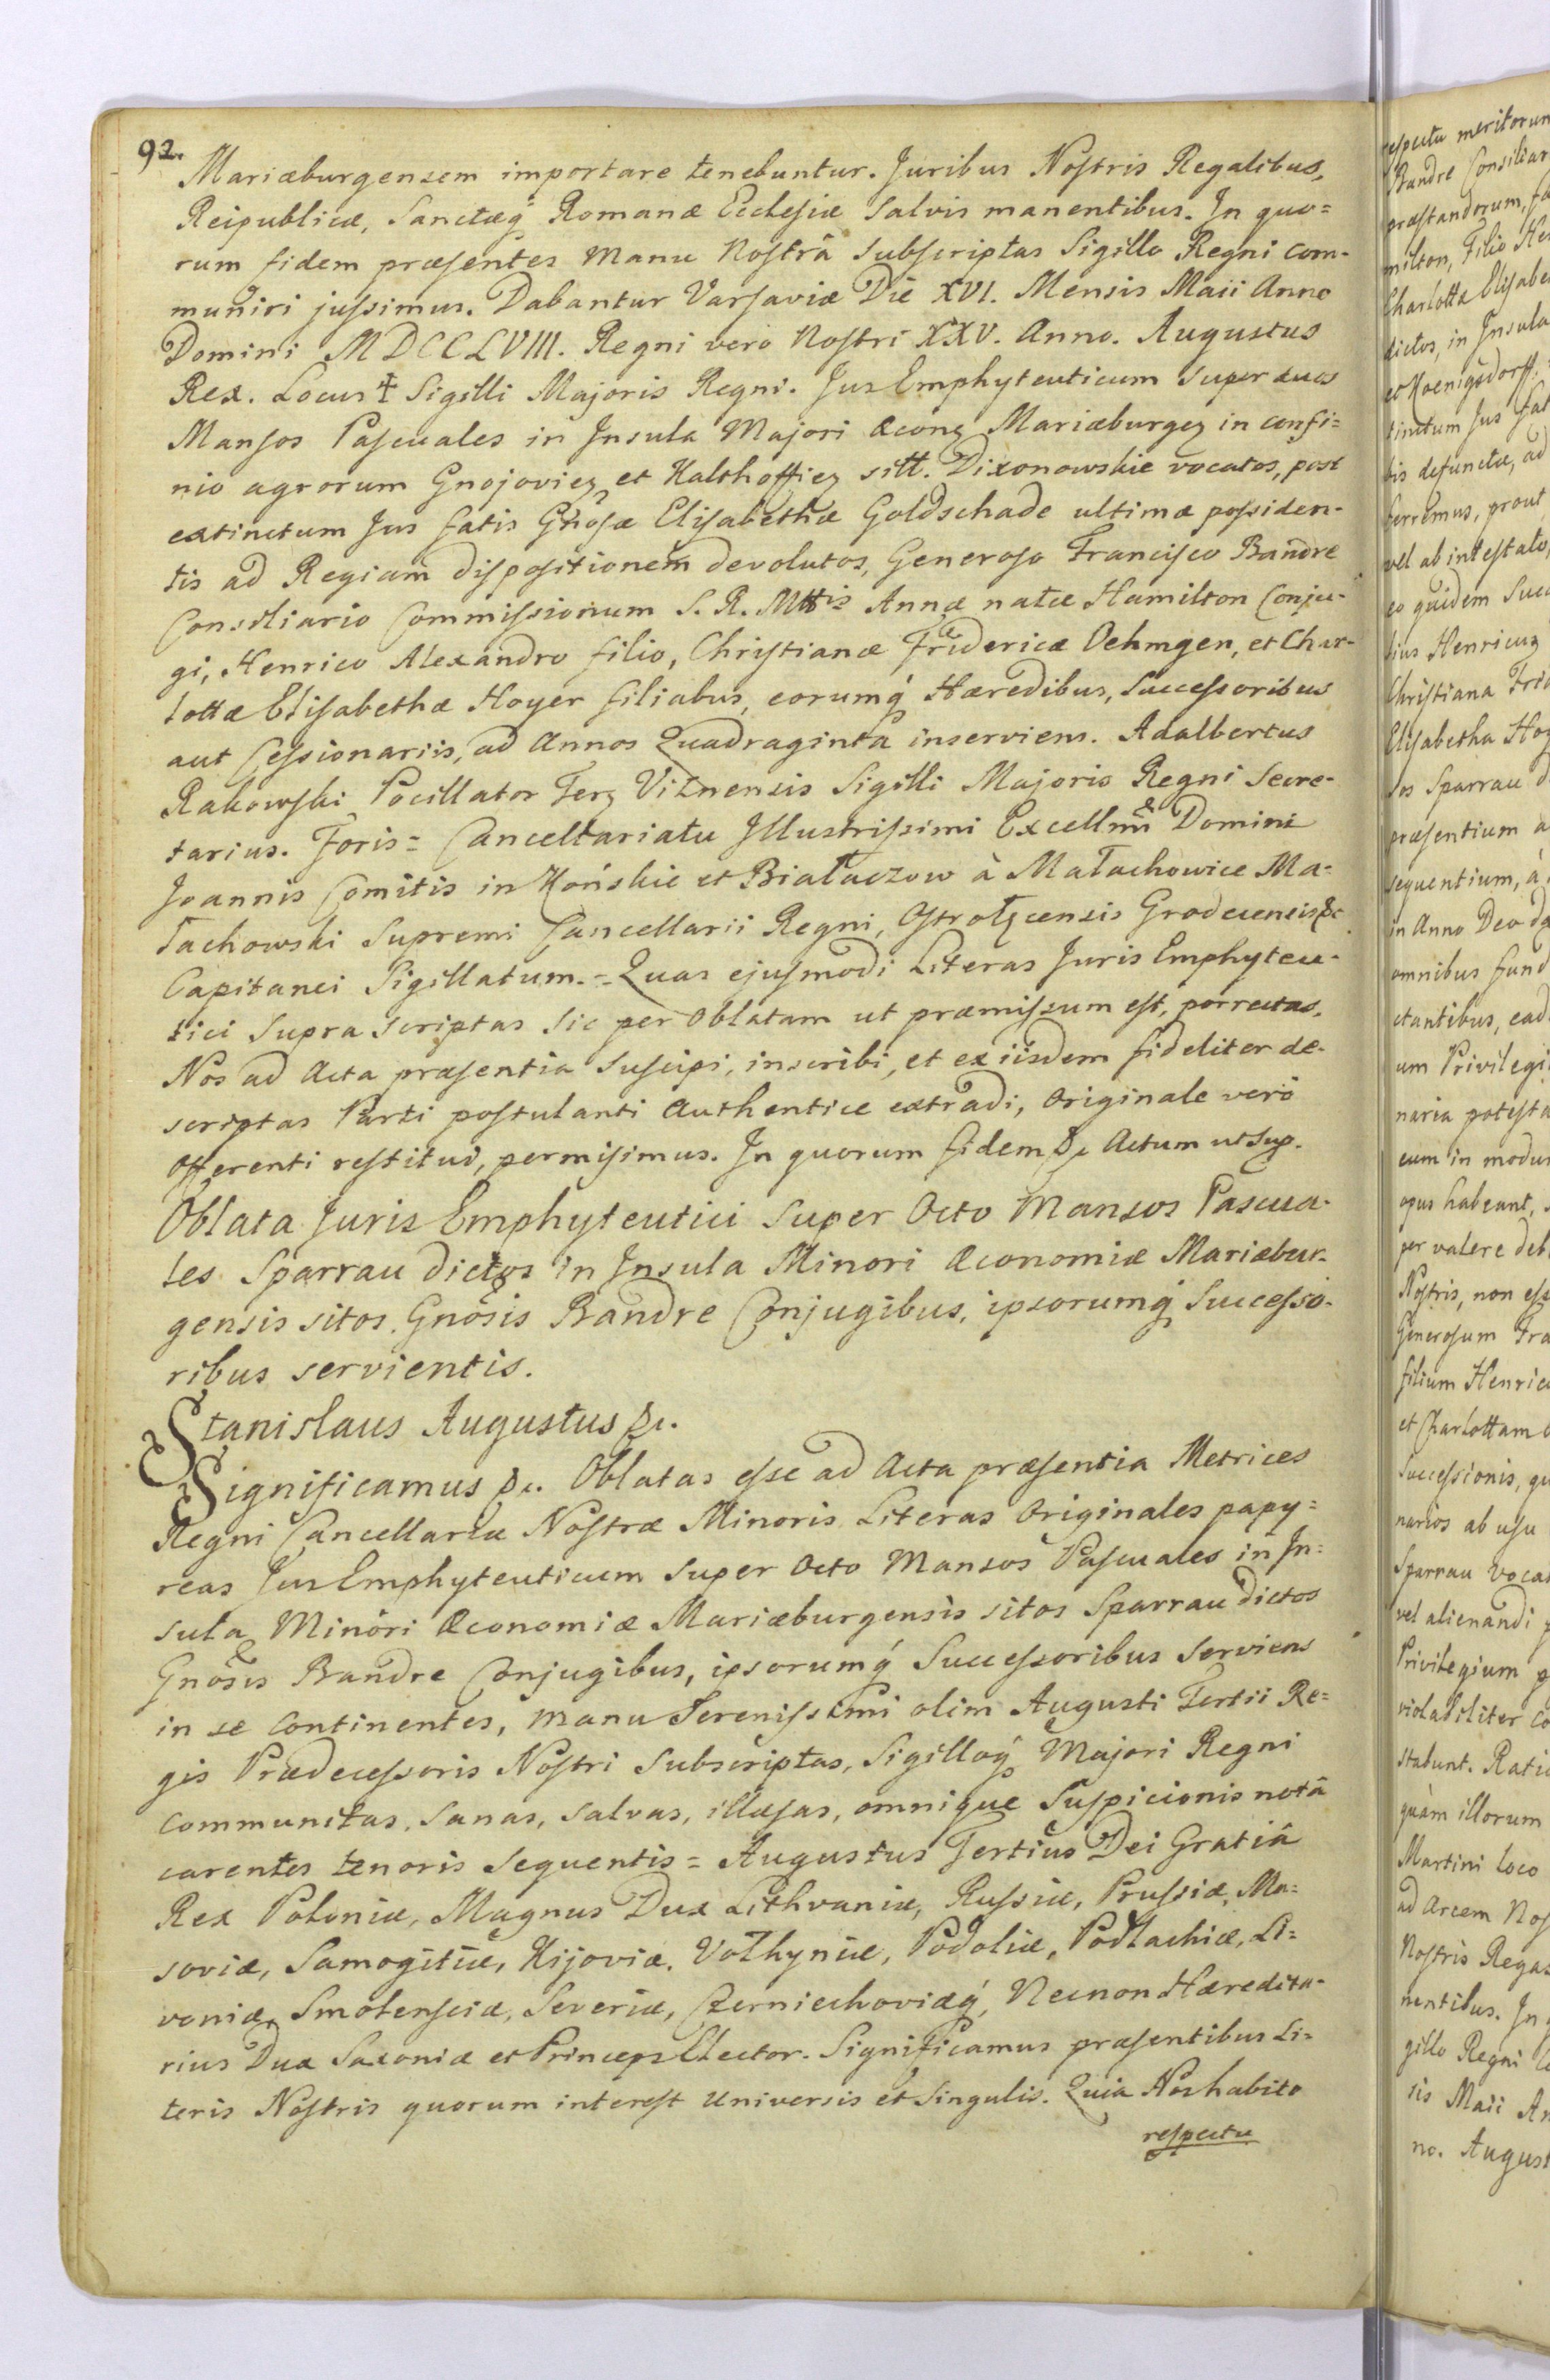 92.
Mariæburgensem importare tenebuntur. Juribus Nostris Regalibus,
Reipublicæ, Sanctæq́ Romanæ Ecclesiæ salvis manentibus. In quo=
rum fidem præsentes Manu Nostrâ subscriptas Sigillo Regni com-
muniri jussimus. Dabantur Varsaviæ Die XVI. Mensis Maii Anno
Domini MDCCLVIII. Regni vero Nostri XXV. Anno. Augustus
Rex. Locus ‡ Sigilli Majoris Regni. Jus Emphyteuticum super duos
Mansos Pascuales in Insula Majori Œconȝ Mariæburgeȝ in confi=
nio agrorum Gnojovieȝ et Kalthoffieȝ sitt. Dixonowskie vocatos, post
extinctum Jus fatis Gnosæ Elisabethæ Goldschade ultimæ possiden-
tis ad Regiam dispositionem devolutos, Generoso Francisco Bandre
Consiliario Commissionum S. R. Mttis Annæ natæ Hamilton Conju-
gi, Henrico Alexandro filio, Christianæ Fridericæ Oehmgen, et Char-
lottæ Elisabethæ Hoyer filiabus, eorumq́ Hæredibus, Successoribus
aut Cessionariis, ad Annos Quadraginta inserviens. Adalbertus
Rakowski Pocillator Terȝ Vilnensis Sigilli Majoris Regni Secre-
tarius. Foris = Cancellariatu Illustrissimi Excellmi Domini
Joannis Comitis in Końskie et Białaczow à Małachowice Ma=
łachowski Supremi Cancellarii Regni, Ostrołęcensis Grodecensis &c
Capitanei Sigillatum. = Quas ejusmodi Literas Juris Emphyteu-
tici supra scriptas sic per Oblatam ut præmissum est, porrectas,
Nos ad Acta præsentia suscipi, inscribi, et ex iisdem fideliter de-
scriptas Parti postulanti Authentice extradi, Originale verò
Offerenti restitui, permisimus. In quorum fidem &c Actum ut sup.
Oblata Juris Emphyteutici super Octo Mansos Pascua-
les Sparrau dictos in Insula Minori Œconomiæ Mariæbur-
gensis sitos. Gnosis Bandre Conjugibus, ipsorumq́ Successo-
ribus servientis.
Stanislaus Augustus &c.
Significamus &c. Oblatas esse ad Acta præsentia Metrices
Regni Cancellariæ Nostræ Minoris Literas Originales papy=
reas Jus Emphyteuticum super Octo Mansos Pascuales in In=
sula Minori Œconomiæ Mariæburgensis sitos Sparrau dictos
Gnosis Bandre Conjugibus, ipsorumq́ Successoribus Serviens
in se continentes, manu Serenissimi olim Augusti Tertii Re=
gis Prædecessoris Nostri Subscriptas, Sigilloq́ Majori Regni
communitas, Sanas, salvas, illæsas, omnique Suspicionis notâ
carentes tenoris sequentis = Augustus Tertius Dei Gratiâ
Rex Poloniæ, Magnus Dux Lithvaniæ, Russiæ, Prussiæ, Ma=
soviæ, Samogitiæ, Kijoviæ, Vołhyniæ, Podoliæ, Podlachiæ, Li=
voniæ, Smolensciæ, Severiæ, Czerniechoviæq́, Necnon Hæredita-
rius Dux Saxoniæ et Princeps Elector. Significamus præsentibus Li=
teris Nostris quorum interest Universis et Singulis. Quia Nos habito
respectu
respectu meritorum
Bandre Consiliar
præstandorum, fa
milton, Filio He
Charlotta Elisabe
dictos, in Insula
et Koenigsdorff
tinctum Jus fat
tis defunctæ, ad
ferremus, prout
vel ab intestato,
eo quidem Succ
tius Henricus
Christiana Frid
Elisabetha Hoy
sos Sparrau d
præsentium a
sequentium, à
in Anno Deo d
omnibus fund
ctantibus, ead
um Privilegi
naria potesta
cum in modu
opus habeant,
per valere deb
Nostris, non ess
Generosum Fra
filium Henric
et Charlottam
Successionis, qu
narios ab usu
Sparrau voca
vel alienandi p
Privilegium p
violabiliter co
stabunt. Rati
quàm illorum
Martini loco
ad Arcem Nos
Nostris Regal
nentibus. In
gillo Regni C
sis Maii An
no. August